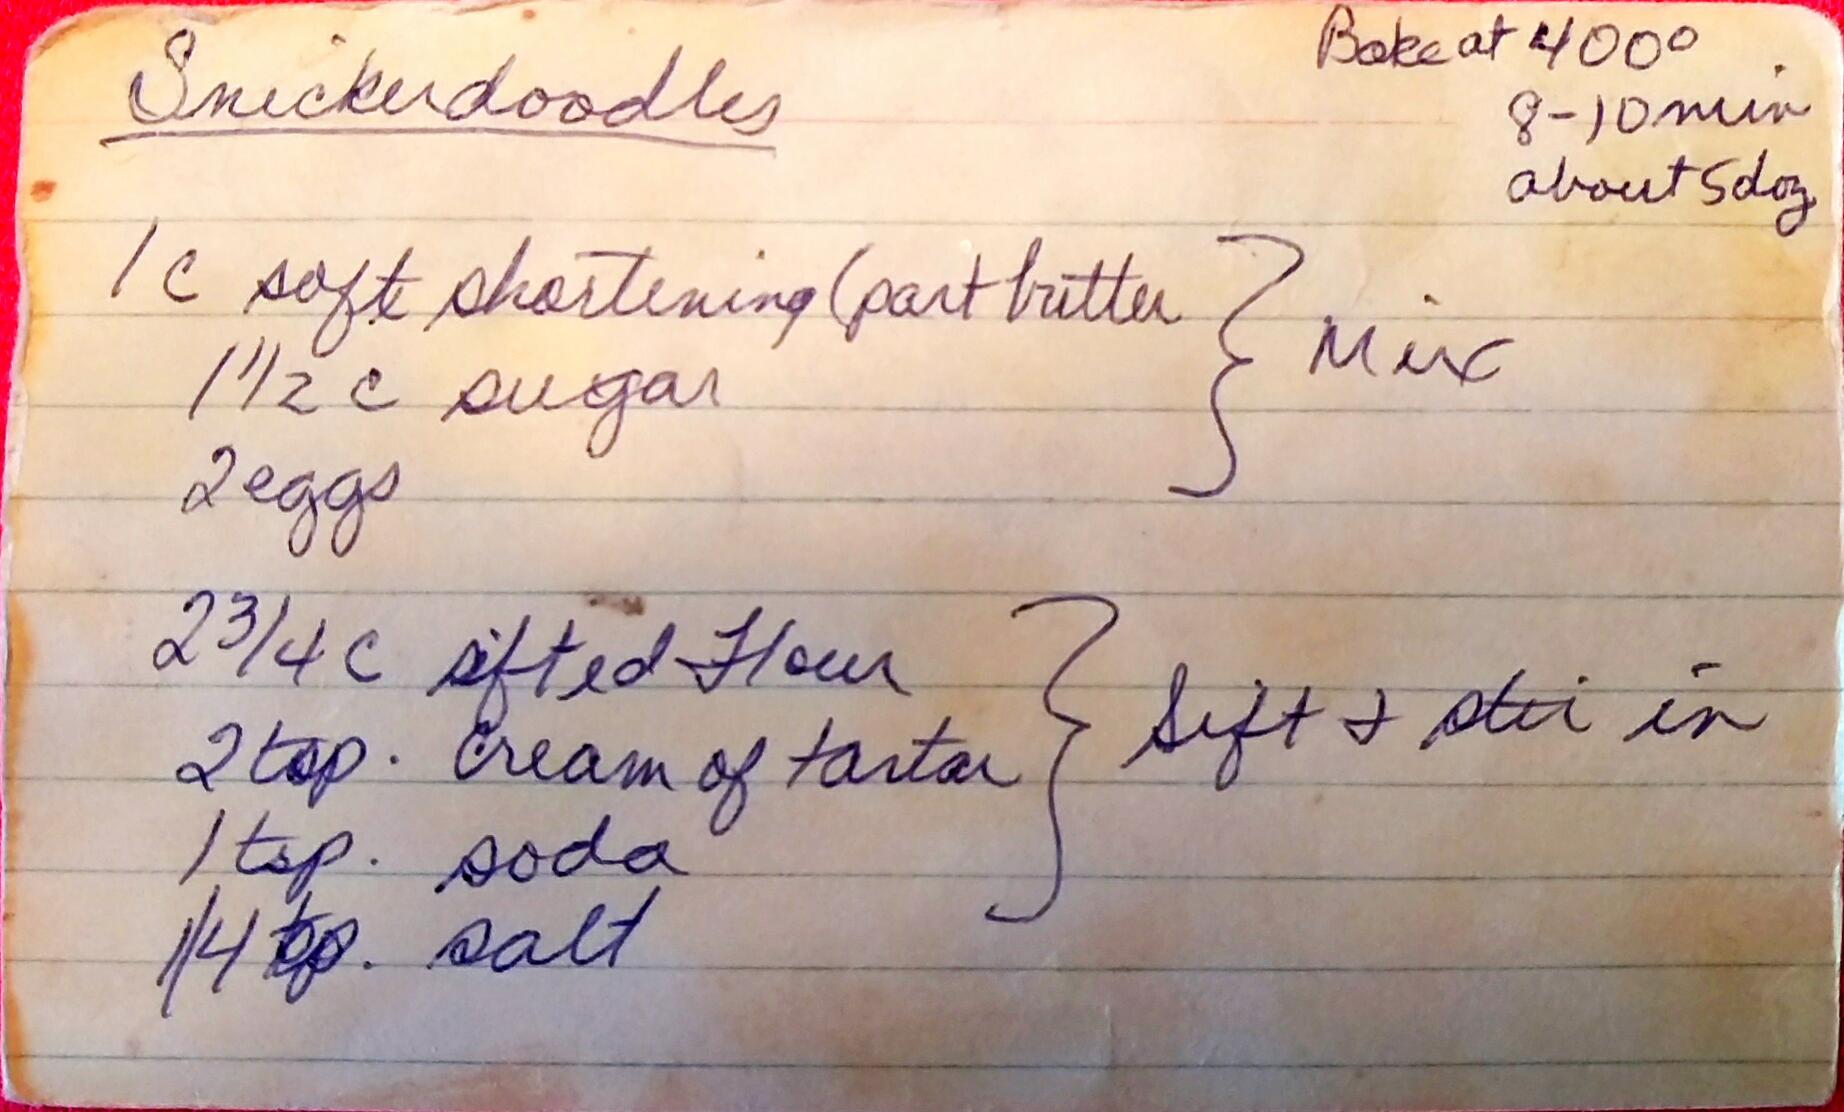 Snickerdoodles
Bake at 400°
8-10 min
about 5 doz
1 c soft shortening (part butter
1 1/2 c sugar
2 eggs
Mix
2 3/4 c sifted Flour
2 tsp. Cream of tartar
1 tsp. soda
1/4 tsp. salt
Sift & stir in